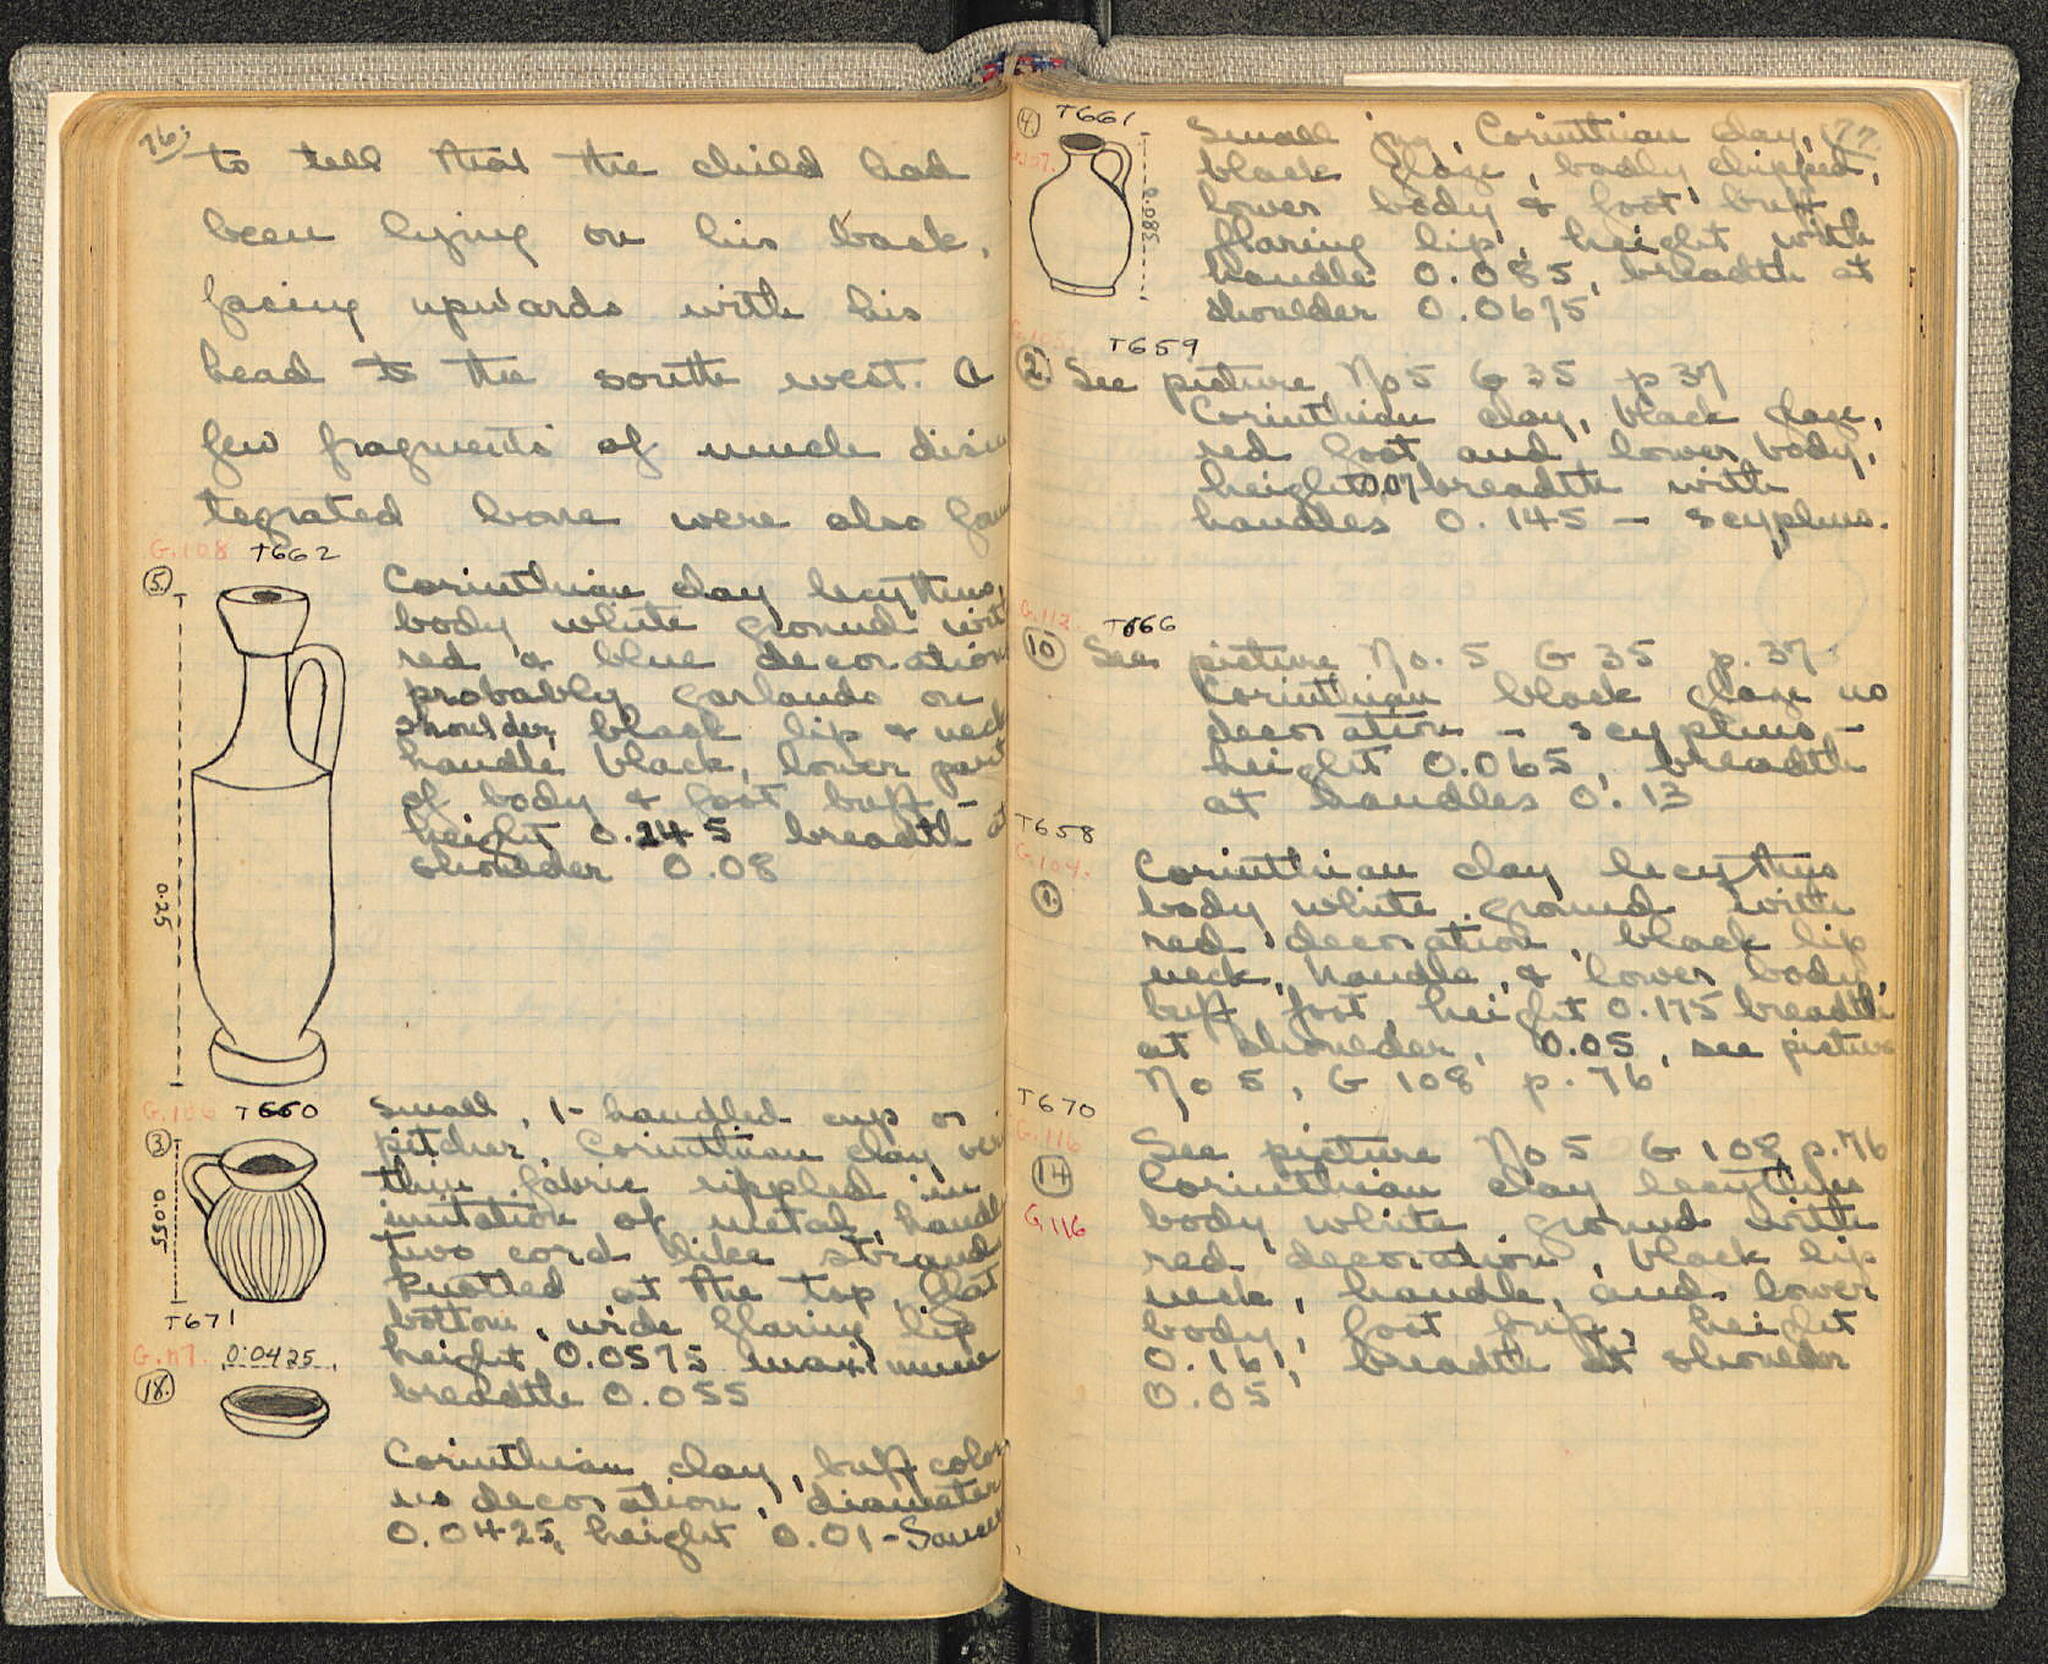 76.
to tell that the child had
been lying on his back,
facing upwards with his
head to the south west. A
few fragments of much disin
tegrated bone were also
G.108 T662
5.
0.25
Corinthian clay lecythus,
body white ground with
red & blue decoration
probably garlands on
shoulder, black lip & neck
handle black, lower part
of body & foot buff -
height 0.245 breadth at
shoulder 0.08
G.106 T660
3
0.055
Small, 1-handled cup or
pitcher, Corinthian clay
thin fabric rippled in
imitation of metal, handle
two cord like strands
knotted at the top, flat
bottom, wide flaring lip
height 0.0575 maximum
breadth 0.055
T671
G.117. 0.0425
18.
Corinthian clay, buff color
no decoration, diameter
0.0425, height 0.01 - Saucer
77.
4. T661
0.085
Small jug, Corinthian clay,
black glaze, badly chipped,
lower body & foot buff,
flaring lip, height with
handle 0.085, breadth at
shoulder 0.0675
T659
2. See picture No 5 G 35 p 37
Corinthian clay, black glaze,
red foot and lower body,
height 0.07 breadth with
handles 0.145 - scyphus.
G.112. T666
10 See picture No. 5 G 35 p. 37
Corinthian black glaze no
decoration - scyphus -
height 0.065, breadth
at handles 0.13
T658
G.104.
1.
Corinthian clay lecythus
body white ground with
red decoration, black lip
neck, handle, & lower body,
buff foot, height 0.175 breadth
at shoulder, 0.05, see picture
No 5, G 108 p. 76
T670
G.116
17
G 116
See picture No 5 G 108 p. 76
Corinthian clay lecythus
body white ground with
red decoration, black lip
neck, handle, and lower
body, foot buff, height
0.161, breadth at shoulder
0.05